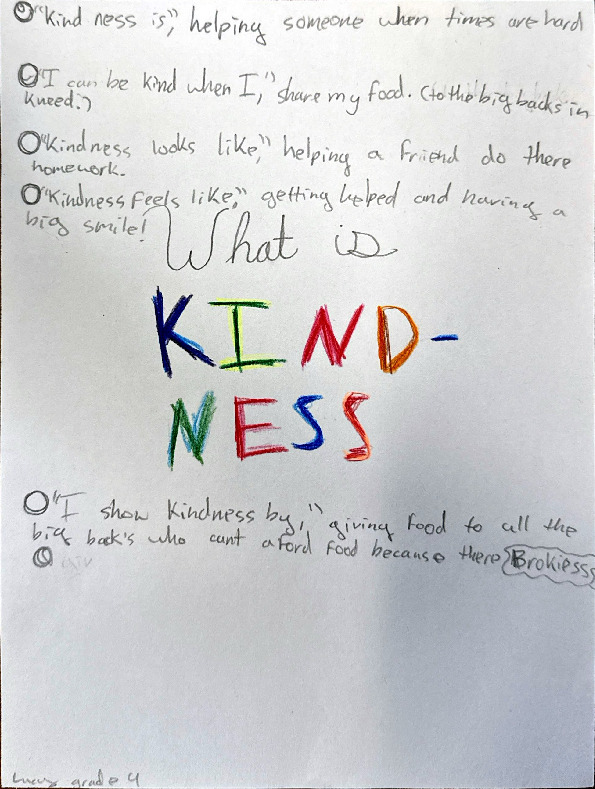 "Kind ness is," helping someone when times are hard
"I can be kind when I," share my food. (to the big backs in
kneed.)
"Kindness looks like," helping a friend do there
homework.
"Kindness Feels like," getting helped and having a
big smile!
What is
KIND-
NESS
"I show Kindness by," giving food to all the
big back's who cant aford food because there Brokiesss
grade 4